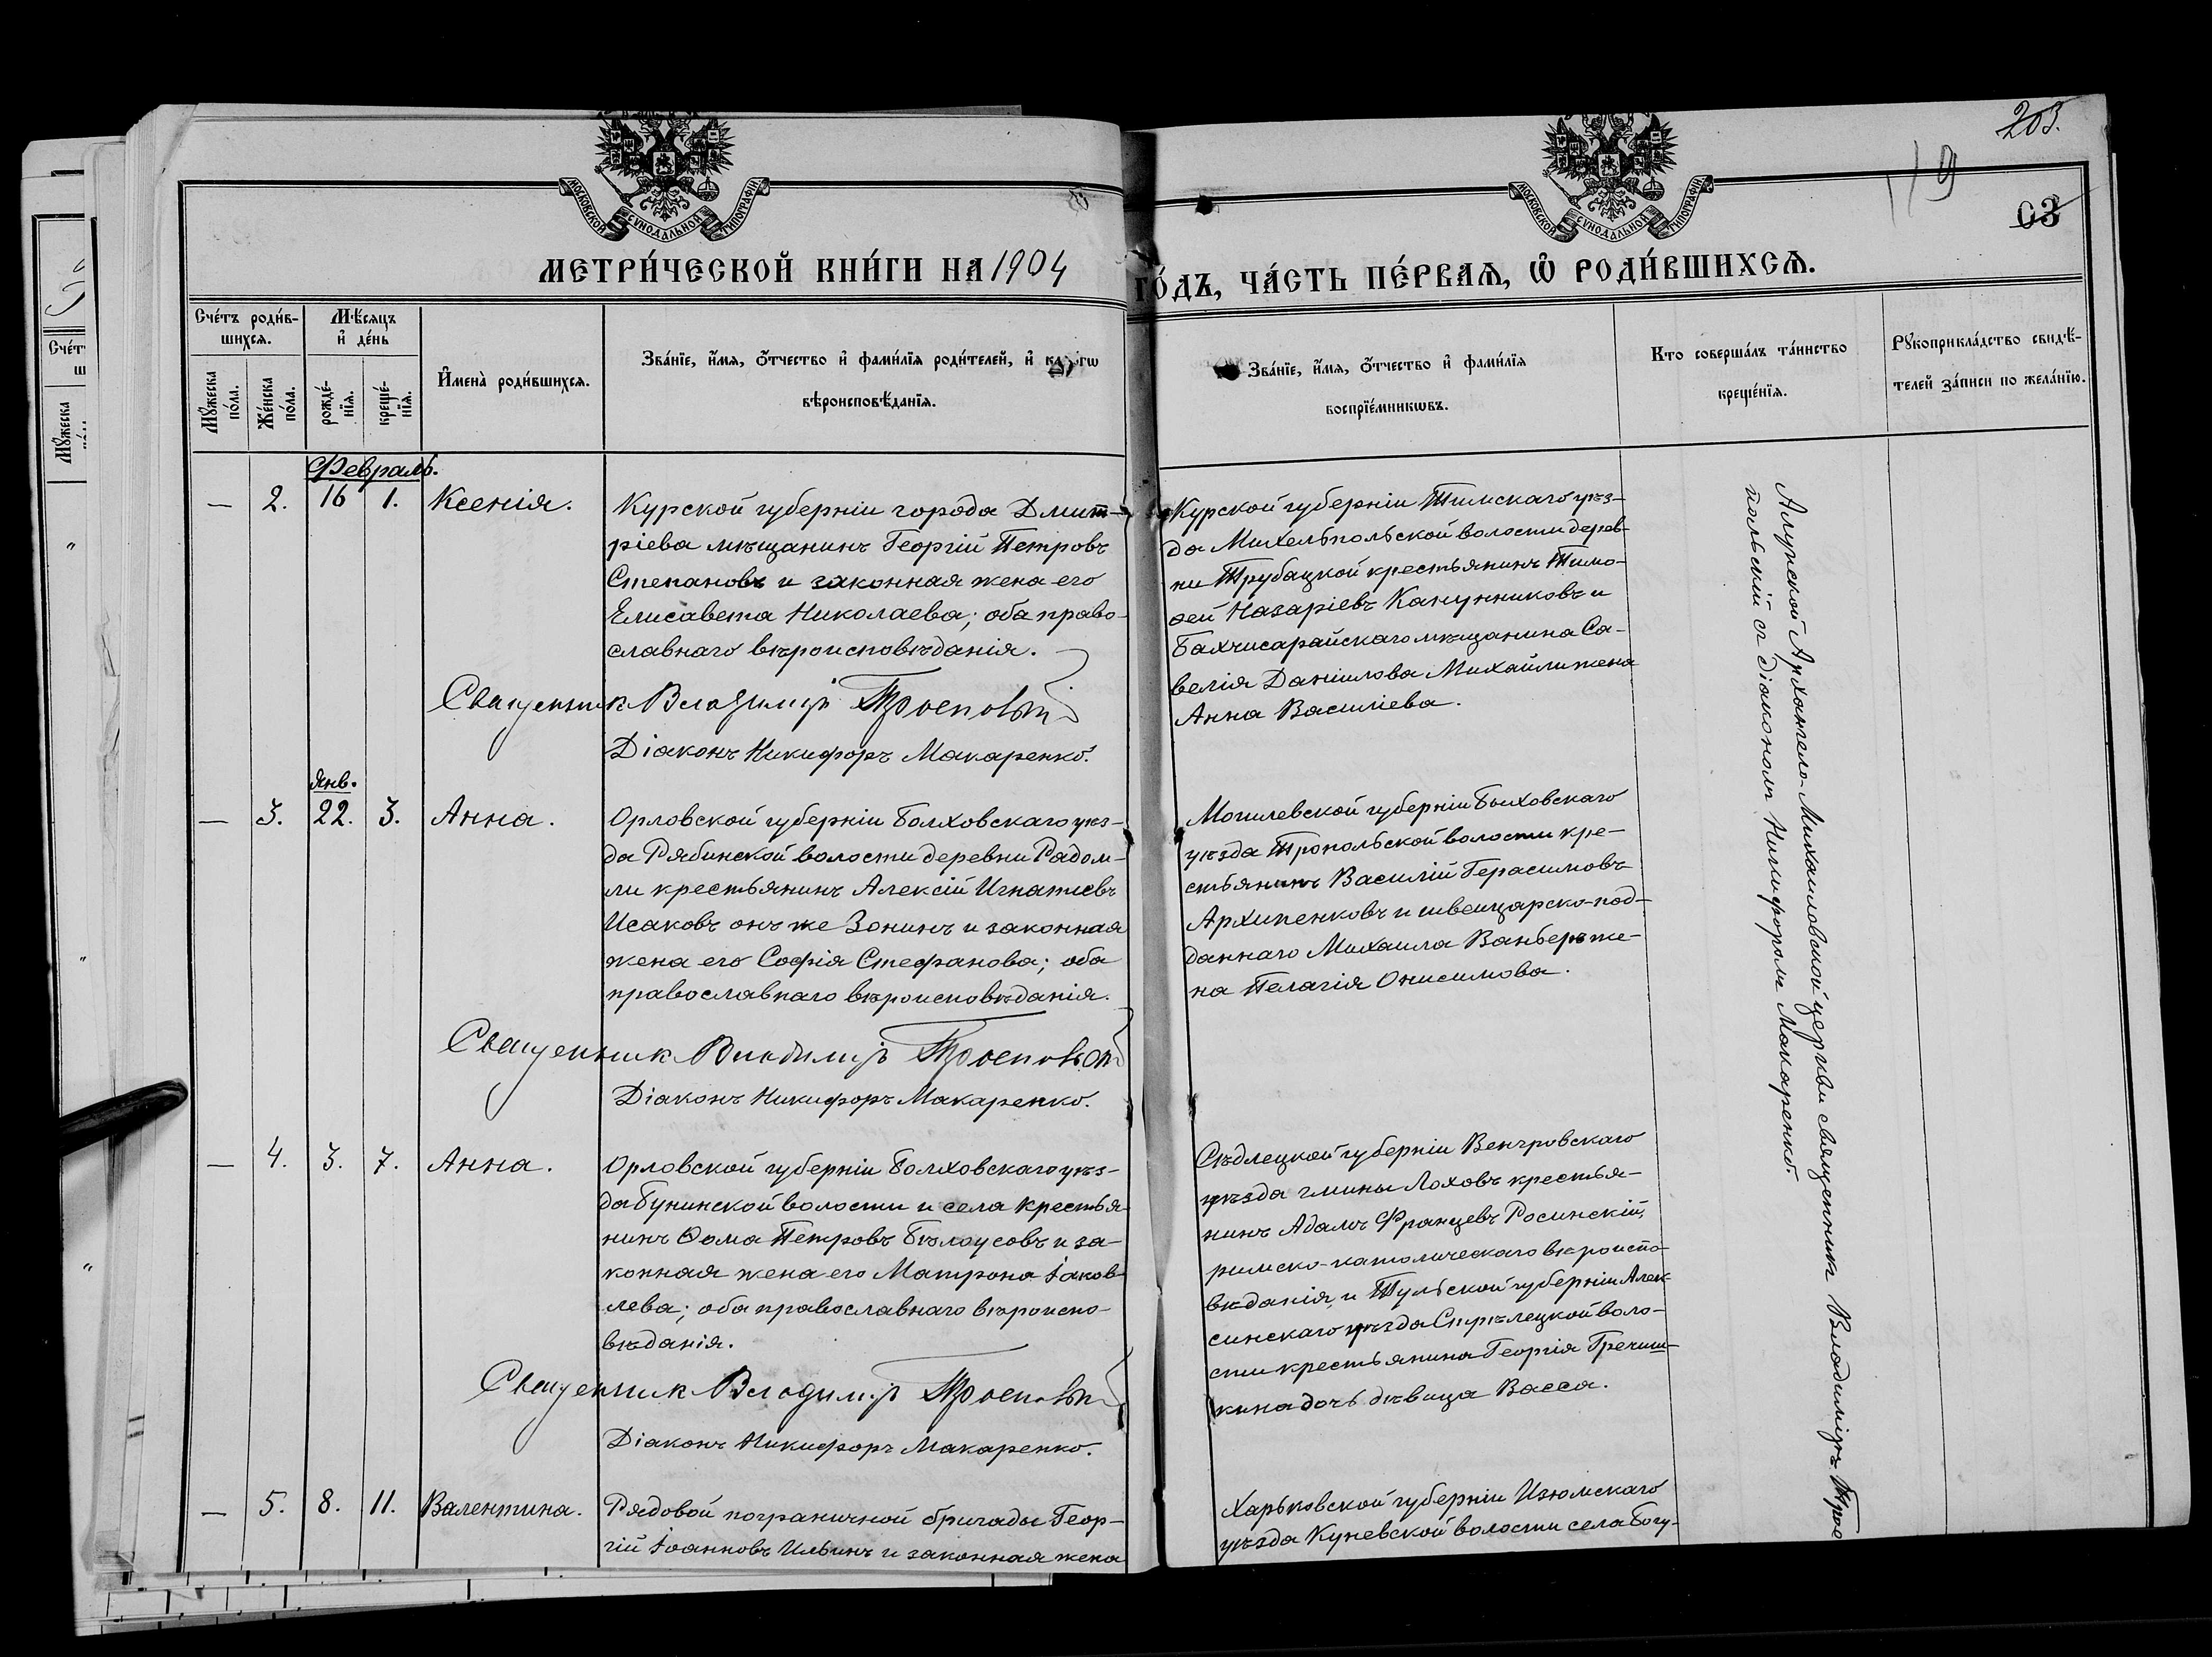 203.
119
03
МОСКОВСКОЙ СѴНОДАЛЬНОЙ ТИПОГРАФІИ.
МОСКОВСКОЙ СѴНОДАЛЬНОЙ ТИПОГРАФІИ.
МЕТРИ́ЧЕСКОЙ КНИ́ГИ НА 1904
ГО́ДЪ, ЧА́СТЬ ПЕ́РВАѦ, Ѡ҆ РОДИ́ВШИХСѦ.
Сче́тъ роди́в-
шихсѧ.
Мꙋ́жеска по́ла.
Же́нска по́ла.
Мѣ́сѧцъ
и҆ де́нь
рожде́-
нїѧ.
креще́-
нїѧ.
И҆мена̀ роди́вшихсѧ.
Зва́нїе, и҆́мѧ, ѻ҆́тчество и҆ фами́лїѧ роди́телей, и҆
вѣроисповѣ́данїѧ.
Зва́нїе, и҆́мѧ, ѻ҆́тчество и҆ фами́лїѧ
воспрїе́мникѡвъ.
Кто соверша́лъ та́инство
креще́нїѧ.
Рꙋкоприкла́дство свидѣ́-
телей за́писи по жела́нїю.
Февраль.
— 2. 16 1. Ксенія.
Курской губерніи города Дмит-
ріева мѣщанинъ Георгій Петровъ
Степановъ и законная жена его
Елисавета Николаева; оба право-
славнаго вѣроисповѣданія.
Священник Владиміръ
Діаконъ Никифоръ Макаренко.
Курской губерніи Тимскаго уѣз-
да Михельпольской волости дерев-
ни Трубацкой крестьянинъ Тимо-
ѳей Назаріевъ Канунниковъ и
Бахчисарайскаго мѣщанина Са-
велія Даніилова Михайли жена
Анна Василіева.
Янв.
— 3. 22. 3. Анна.
Орловской губерніи Болховскаго уѣз-
да Рябинской волости деревни Радом-
ли крестьянинъ Алексій Игнатіевъ
Исаковъ онъ же Зонинъ и законная
жена его Софія Стефанова; оба
православнаго вѣроисповѣданія.
Священник Владиміръ
Діаконъ Никифоръ Макаренко.
Могилевской губерніи Быховскаго
уѣзда Пропольской волости кре-
стьянинъ Василій Герасимовъ
Архипенковъ и швейцарско-под-
даннаго Михаила Ванберъ же-
на Пелагія Онисимова.
— 4. 3. 7. Анна.
Орловской губерніи Болховскаго уѣз-
да Бунинской волости и села крестья-
нинъ Ѳома Петровъ Бѣлоусовъ и за-
конная жена его Матрона Іаков-
лева; оба православнаго вѣроиспо-
вѣданія.
Священник Владиміръ
Діаконъ Никифоръ Макаренко.
Сѣдлецкой губерніи Венгровскаго
уѣзда гмины Лоховъ крестья-
нинъ Адамъ Францевъ Росинскій,
римско-католическаго вѣроиспо-
вѣданія, и Тульской губерніи Алек-
синскаго уѣзда Стрѣлецкой воло-
сти крестьянина Георгія Гречиш-
кина дочь дѣвица Васса.
— 5. 8. 11. Валентина.
Рядовой пограничной бригады Геор-
гій Іоанновъ Ильинъ и законная жена
Харьковской губерніи Изюмскаго
уѣзда Куневской волости села Богу-
Алупкской Архангело-Михаиловской церкви священникъ Владиміръ Трое
польскій съ діакономъ Никифоромъ Макаренко.